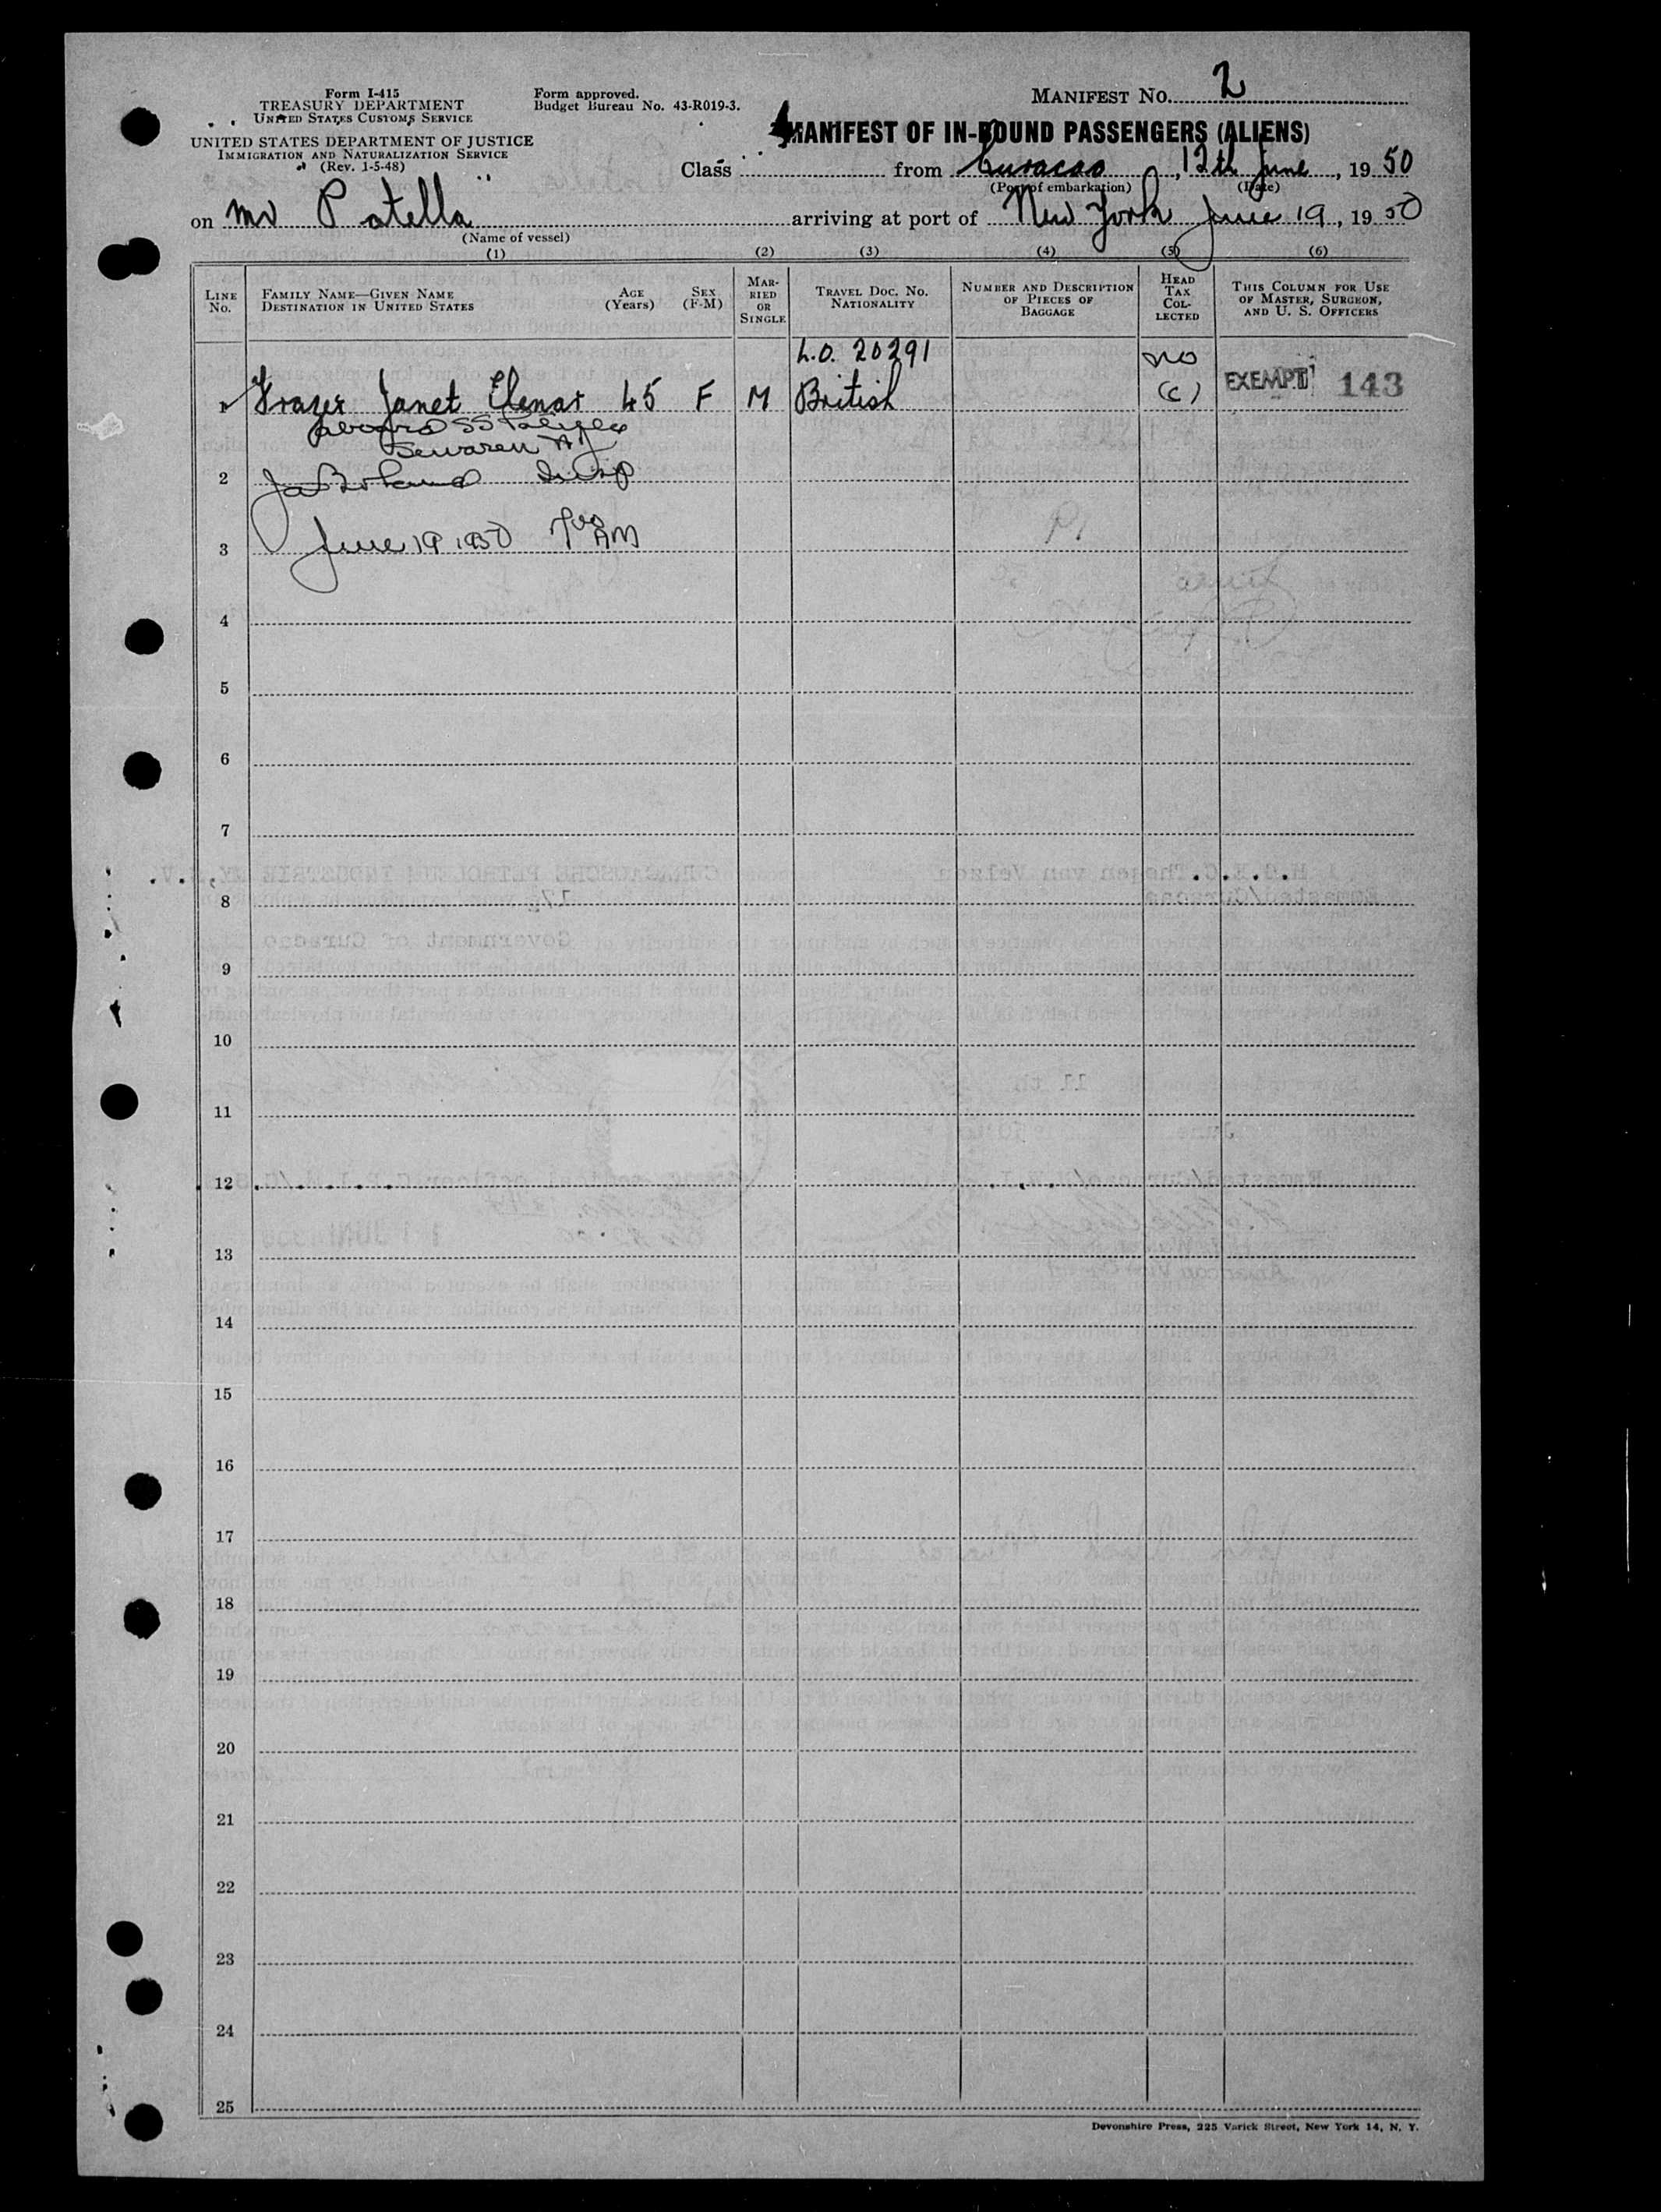 Form I-415
TREASURY DEPARTMENT
UNITED STATES CUSTOMS SERVICE
UNITED STATES DEPARTMENT OF JUSTICE
IMMIGRATION AND NATURALIZATION SERVICE
(Rev. 1-5-48)
Form approved.
Budget Bureau No. 43-R019-3.
MANIFEST NO. 2
MANIFEST OF IN-BOUND PASSENGERS (ALIENS)
Class from Curacao, 12th June, 1950
(Port of embarkation) (Date)
on mv "Patella" arriving at port of New York June 19, 1950
(Name of vessel)
(1) (2) (3) (4) (5) (6)
LINE No. FAMILY NAME—GIVEN NAME DESTINATION IN UNITED STATES AGE (Years) SEX (F-M) MARRIED OR SINGLE TRAVEL DOC. NO. NATIONALITY NUMBER AND DESCRIPTION OF PIECES OF BAGGAGE HEAD TAX COLLECTED THIS COLUMN FOR USE OF MASTER, SURGEON, AND U. S. OFFICERS
L.O. 20291 NO
1 Frazer Janet Elenar 45 F M British (C) EXEMPT 143
aboard SS
Sewaren NJ
2 Insp
3 June 19 1950 AM
4
5
6
7
8
9
10
11
12
13
14
15
16
17
18
19
20
21
22
23
24
25
Devonshire Press, 225 Varick Street, New York 14, N. Y.